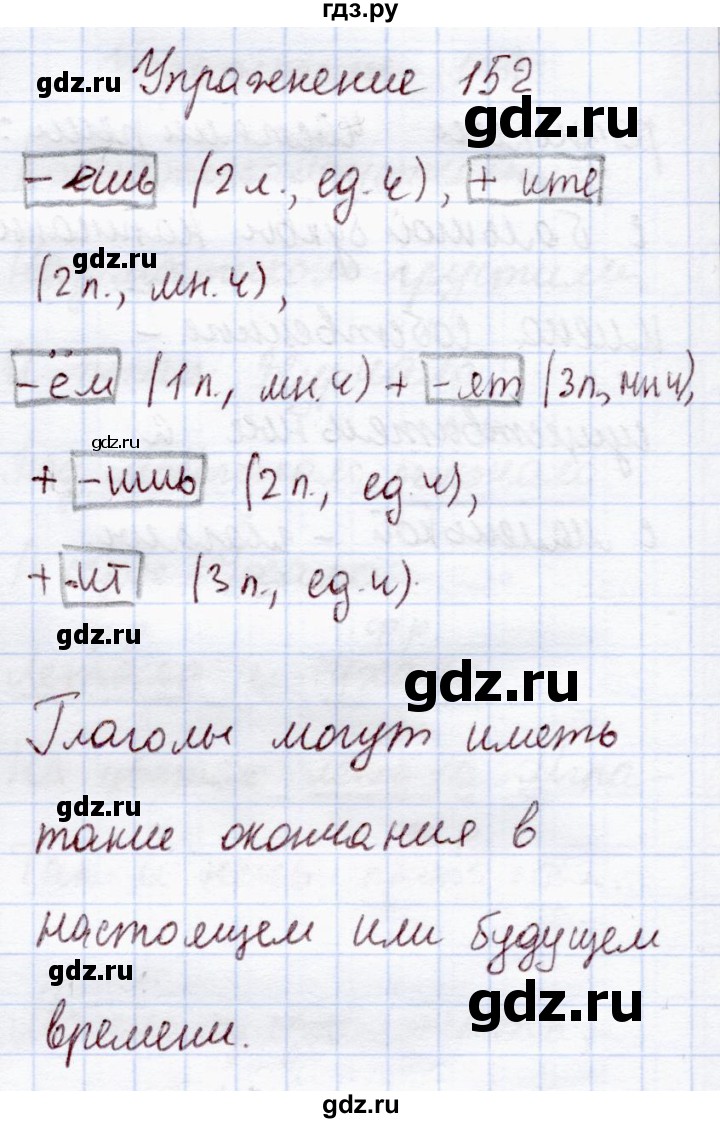 гдз.ру
gdz.ru
Упражнение 152
gdz.ru
-ешь (2 л., ед.ч), + ите
gdz.ru
(2п., мн.ч),
-ём (1п., мн.ч) + -ят (3п., мн.ч),
gdz.ru
+ -ишь (2п., ед.ч),
+ -ит (3п., ед.ч).
gdz.ru
gdz.ru
Глаголы могут иметь
gdz.ru
такие окончания в
настоящем или будущем
gdz.ru
gdz.ru
времени.
gdz.ru